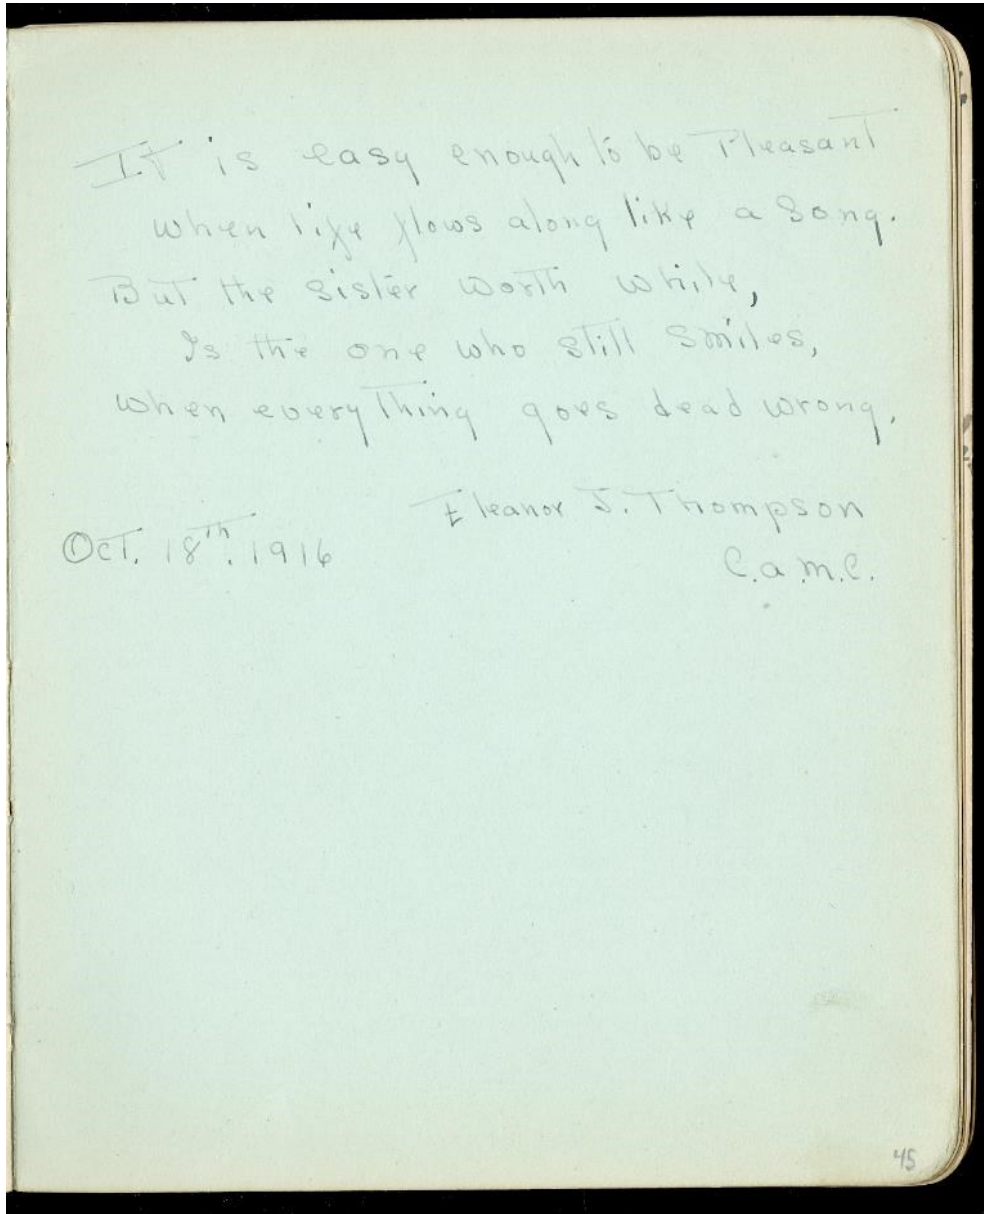 It is easy enough to be Pleasant
When life flows along like a Song.
But the Sister Worth While,
Is the one who Still Smiles,
When every Thing goes dead wrong.
Eleanor J. Thompson
Oct. 18th. 1916
C.a.M.C.
45